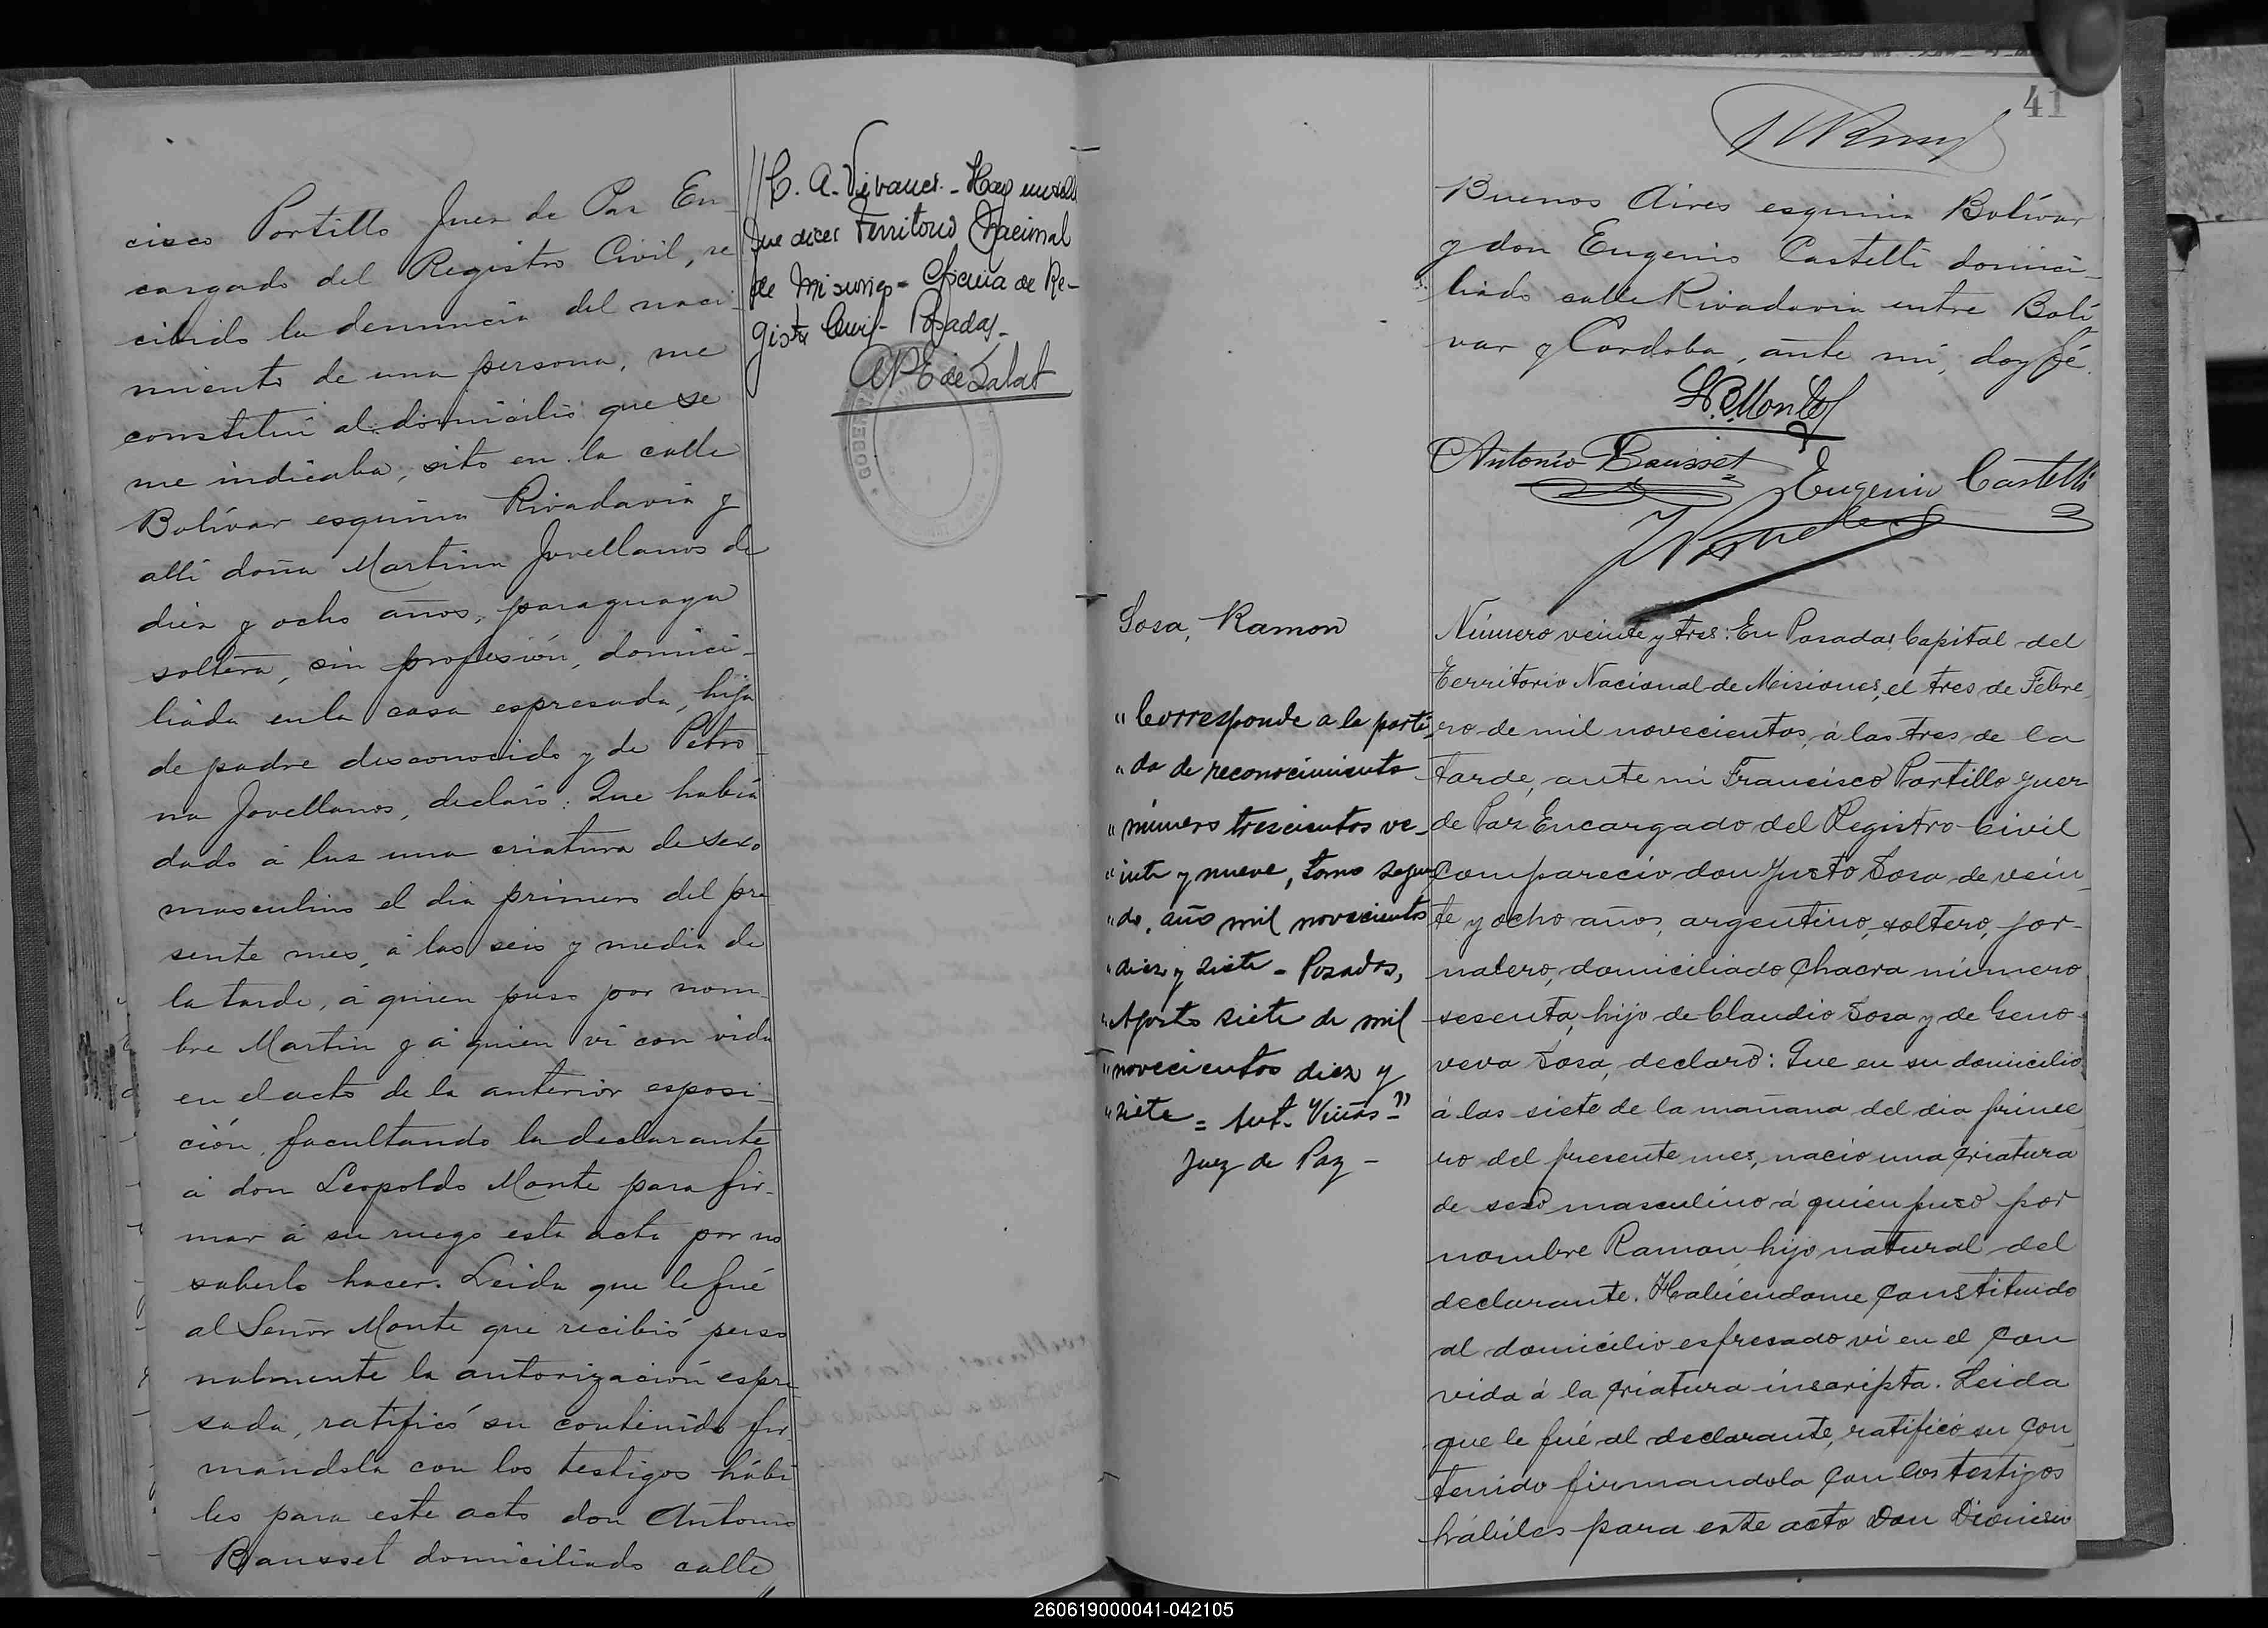 cisco Portillo Juez de Paz En-
cargado del Registro Civil, re
cibido la denuncia del naci-
miento de una persona, me
constituí al domicilio que se
me indicaba, sito en la calle
Bolívar esquina Rivadavia y
allí doña Martina Jovellanos de
diez y ocho años, paraguaya
soltera, sin profesión, domici-
liada en la casa espresada, hija
de padre desconocido y de Petro-
na Jovellanos, declaró: Que había
dado á luz una criatura de sexo
masculino el dia primero del pre
sente mes, á las seis y media de
la tarde, á quien puso por nom-
bre Martin y á quien vi con vida
en el acto de la anterior esposi-
ción, facultando la declarante
á don Leopoldo Monte para fir-
mar á su ruego esta acta por no
saberlo hacer. Leida que le fué
al Señor Monte que recibió perso
nalmente la autorización espre-
sada, ratificó su contenido fir-
mandola con los testigos hábi
les para este acto don Antonio
Bausset domiciliado calle
//C. A. Vivanco. - Hay un sello
que dice: Territorio Nacional
de Misiones - Oficina de Re-
gistro Civil - Posadas -
de Salat
GOBER
41
Buenos Aires esquina Bolívar
y don Eugenio Castelli domici-
liado calle Rivadavia entre Bolí
var y Cordoba, ante mí, doy fé.
L. Monte
Antonio Bausset
Eugenio Castelli
Sosa, Ramon
"Corresponde a la parti-
"da de reconocimiento
"número trescientos ve-
"inte y nueve, tomo segun
"do, año mil novecientos
"diez y siete - Posadas,
"Agosto siete de mil
"novecientos diez y
"siete = Ant. Viñas -"
Juez de Paz -
Número veinte y tres: En Posadas, Capital del
Territorio Nacional de Misiones, el tres de Febre
ro de mil novecientos, á las tres de la
tarde, ante mi Francisco Portillo Juez
de Paz Encargado del Registro Civil
Compareció don Justo Sosa de vein-
te y ocho años, argentino, soltero, jor-
nalero, domiciliado Chacra número
sesenta, hijo de Claudio Sosa y de Geno-
veva Sosa, declaró: Que en su domicilio
á las siete de la mañana del dia prime
ro del presente mes, nació una criatura
de sexo masculino á quien puso por
nombre Ramon, hijo natural del
declarante. Habiéndome constituido
al domicilio espresado vi en el con
vida á la criatura inscripta. Leida
que le fué al declarante, ratificó su con
tenido firmandola con los testigos
hábiles para este acto Don Dionisio
260619000041-042105